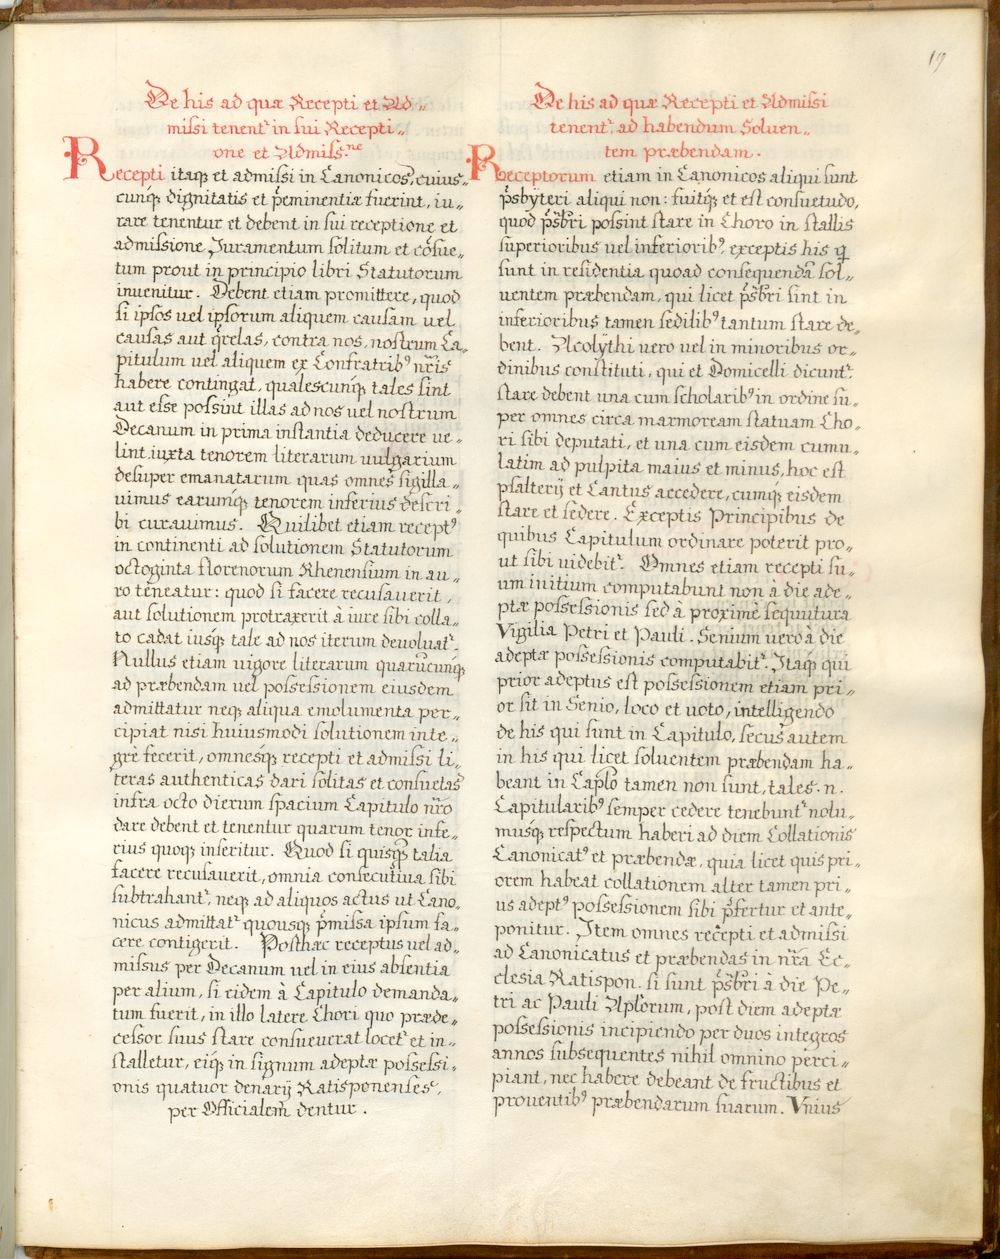 19
De his ad quæ Recepti et Ad„
missi tenent᷑ in sui Recepti„
one et Admiss.ne
Recepti itaq; et admissi in Canonicos, cuius„
cunq; dignitatis et p̄eminentiæ fuerint, iu„
rare tenentur et debent in sui receptione et
admissione Juramentum solitum et cōsue„
tum prout in principio libri Statutorum
inuenitur. Debent etiam promittere, quod
si ipsos uel ipsorum aliquem causam uel
causas aut q̄relas, contra nos, nostrum Ca„
pitulum uel aliquem ex Confratribꝰ nr̄is
habere contingat, qualescunq; tales sint
aut esse possint illas ad nos uel nostrum
Decanum in prima instantia deducere ue„
lint iuxta tenorem literarum uulgarium
desuper emanatarum quas omnes sigilla„
uimus earumq; tenorem inferius descri„
bi curauimus. Quilibet etiam receptꝰ
in continenti ad solutionem Statutorum
octoginta florenorum Rhenensium in au„
ro teneatur: quod si facere recusauerit,
aut solutionem protraxerit à iure sibi colla„
to cadat iusq; tale ad nos iterum deuoluat᷑.
Nullus etiam uigore literarum quarūcunq;
ad præbendam uel possessionem eiusdem
admittatur neq; aliqua emolumenta per„
cipiat nisi huiusmodi solutionem inte„
grè fecerit, omnesq; recepti et admissi li„
teras authenticas dari solitas et consuetas
infra octo dierum spacium Capitulo nr̄o
dare debent et tenentur quarum tenor infe„
rius quoq; inseritur. Quod si quisq̄; talia
facere recusauerit, omnia consecutiua sibi
subtrahant᷑, neq; ad aliquos actus ut Cano„
nicus admittat᷑ quousq; p̄missa ipsum fa„
cere contigerit. Posthac receptus uel ad„
missus per Decanum uel in eius absentia
per alium, si eidem à Capitulo demanda„
tum fuerit, in illo latere Chori quo præde„
cessor suus stare consueuerat locet᷑ et in„
stalletur, eiq; in signum adeptæ possessi„
onis quatuor denarij Ratisponenses,
per Officialem dentur.
De his ad quæ Recepti et Admissi
tenent᷑, ad habendum Soluen„
tem præbendam.
Receptorum etiam in Canonicos aliqui sunt
p̄sbyteri aliqui non: fuitq; et est consuetudo,
quod p̄sbr̄i possint stare in Choro in stallis
superioribus uel inferioribꝰ, exceptis his q̄
sunt in residentia quoad consequendā sol„
uentem præbendam, qui licet p̄sbr̄i sint in
inferioribus tamen sedilibꝰ tantum stare de„
bent. Acolythi uero uel in minoribus or„
dinibus constituti, qui et Domicelli dicunt᷑
stare debent una cum scholaribꝰ in ordine su„
per omnes circa marmoream statuam Cho„
ri sibi deputati, et una cum eisdem cumu„
latim ad pulpita maius et minus, hoc est
psalterij et Cantus accedere, cumq; eisdem
stare et sedere. Exceptis Principibus de
quibus Capitulum ordinare poterit pro„
ut sibi uidebit᷑. Omnes etiam recepti su„
um initium computabunt non à die ade„
ptæ possessionis sed à proximè sequutura
Vigilia Petri et Pauli. Senium uerò à die
adeptæ possessionis computabit᷑. Itaq; qui
prior adeptus est possessionem etiam pri„
or sit in Senio, loco et uoto, intelligendo
de his qui sunt in Capitulo, secus autem
in his qui licet soluentem præbendam ha„
beant in Cap̄lo tamen non sunt, tales. n.
Capitularibꝰ semper cedere tenebunt᷑ nolu„
musq; respectum haberi ad diem Collationis
Canonicatꝰ et præbendæ, quia licet quis pri„
orem habeat collationem alter tamen pri„
us adeptꝰ possessionem sibi p̄fertur et ante„
ponitur. Item omnes recepti et admissi
ad Canonicatus et præbendas in nr̄a Ec„
clesia Ratispon. si sunt p̄sbr̄i à die Pe„
tri ac Pauli Aplōrum, post diem adeptæ
possessionis incipiendo per duos integros
annos subsequentes nihil omnino perci„
piant, nec habere debeant de fructibus et
prouentibꝰ præbendarum suarum. Vnius